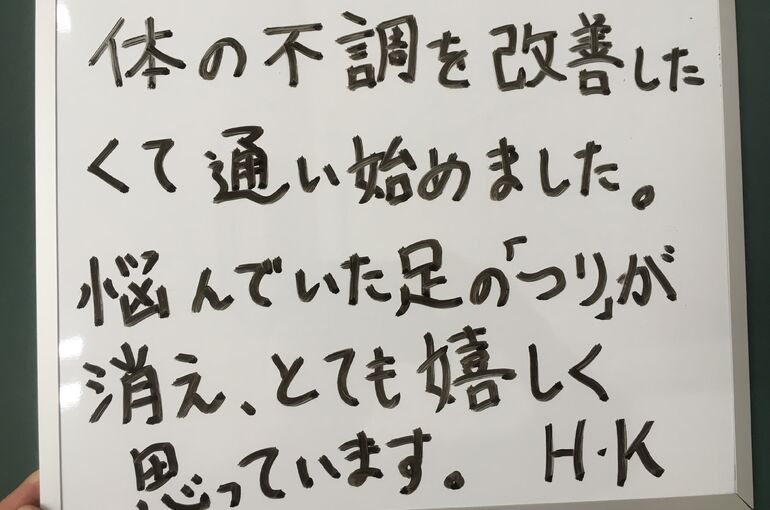 体の不調を改善した
くて通い始めました。
悩んでいた足の「つり」が
消え、とても嬉しく
思っています。 H・K